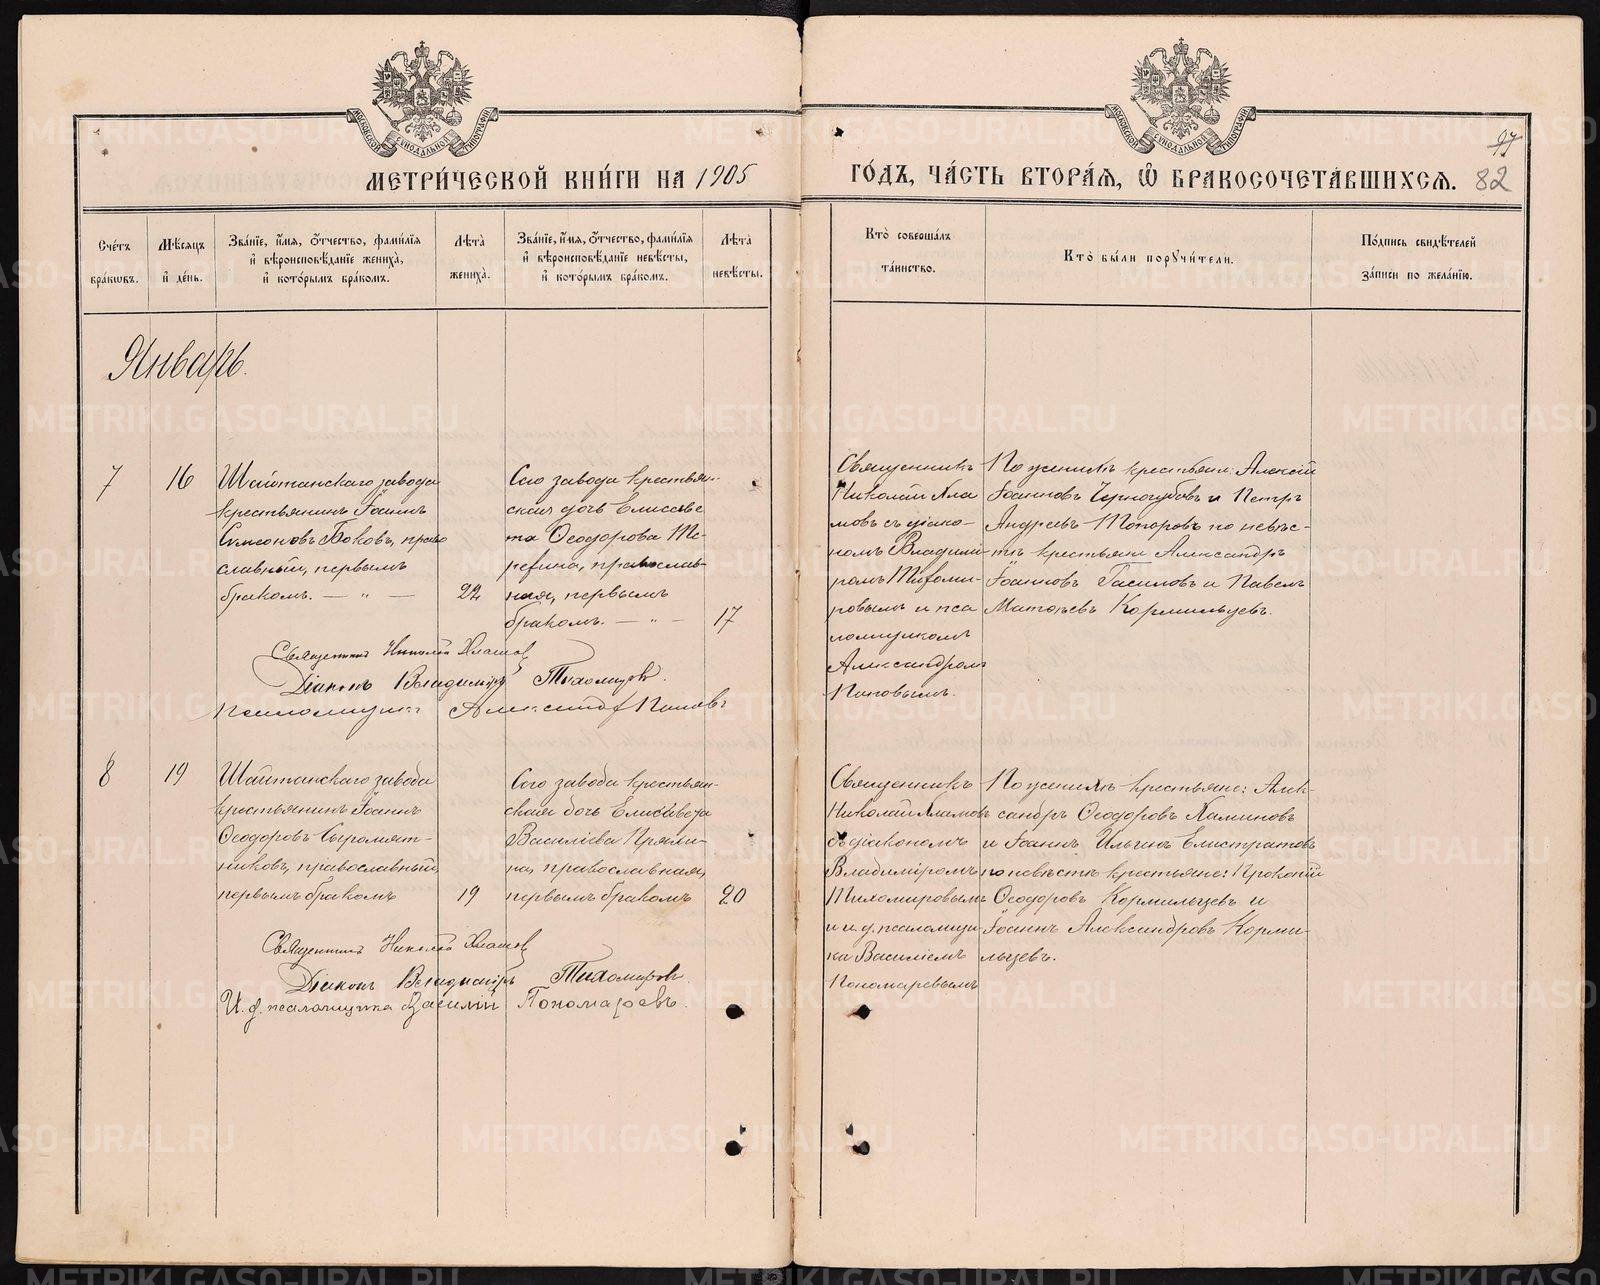 МЕТРИ́ЧЕСКОЙ КНИ́ГИ НА 1905
ГО́ДЪ, ЧА́СТЬ ВТОРА́Ѧ, Ѽ БРАКОСОЧЕТА́ВШИХСѦ.
97
82
Сче́тъ бра́кѡвъ.
Мѣ́сяцъ и҆ де́нь.
Зва́нїе, и҆́мѧ, ѻ҆́тчество, фами́лїѧ и҆ вѣроисповѣ́данїе жениха̀, и҆ кото́рымъ бра́комъ.
Лѣта̀ жениха̀.
Зва́нїе, и҆́мѧ, ѻ҆́тчество, фами́лїѧ и҆ вѣроисповѣ́данїе невѣ́сты, и҆ кото́рымъ бра́комъ.
Лѣта̀ невѣ́сты.
Кто̀ соверша́лъ та́инство.
Кто̀ бы́ли порꙋчи́тели.
По́дпись свидѣ́телей за́писи по жела́нїю.
Январь.
7
16
Шайтанскаго завода
крестьянинъ Іоаннъ
Симеоновъ Боковъ, право
славный, первымъ
бракомъ. — " —
22
Сего завода крестьян-
ская дочь Елисаве
та Ѳеодорова Те-
рехина, православ-
ная, первымъ
бракомъ. — " —
17
Священникъ
Николай
мовъ съ діако-
номъ Владимі-
ромъ Тихоми-
ровымъ и пса
ломщикомъ
Александромъ
Поповымъ.
По женихѣ крестьяне: Алексѣй
Іоанновъ Черногубовъ и Петръ
Андреевъ Топоровъ по невѣс-
тѣ крестьяне Александръ
Іоанновъ Гасиловъ и Павелъ
Матѳеевъ Кормильцевъ.
Священникъ Николай
Діаконъ Владиміръ Тихомировъ.
Псаломщикъ Александръ Поповъ
8
19
Шайтанскаго завода
крестьянинъ Іоаннъ
Ѳеодоровъ Сыромят-
никовъ, православный,
первымъ бракомъ
19
Сего завода крестьян-
ская дочь Елисавета
Василіева Пряхи-
на, православная,
первымъ бракомъ
20
Священникъ
Николай
съ діакономъ
Владиміромъ
Тихомировымъ
и и. д. псаломщи
ка Василіемъ
Пономаревымъ
По женихѣ крестьяне: Алек-
сандръ Ѳеодоровъ Халиновъ
и Іоаннъ Ильинъ Елистратовъ
по невѣстѣ крестьяне: Прокопій
Ѳеодоровъ Кормильцевъ и
Іоаннъ Александровъ Корми-
льцевъ.
Священникъ Николай
Діаконъ Владиміръ Тихомировъ
И. д. псаломщика Василій Пономаревъ.
METRIKI.GASO-URAL.RU